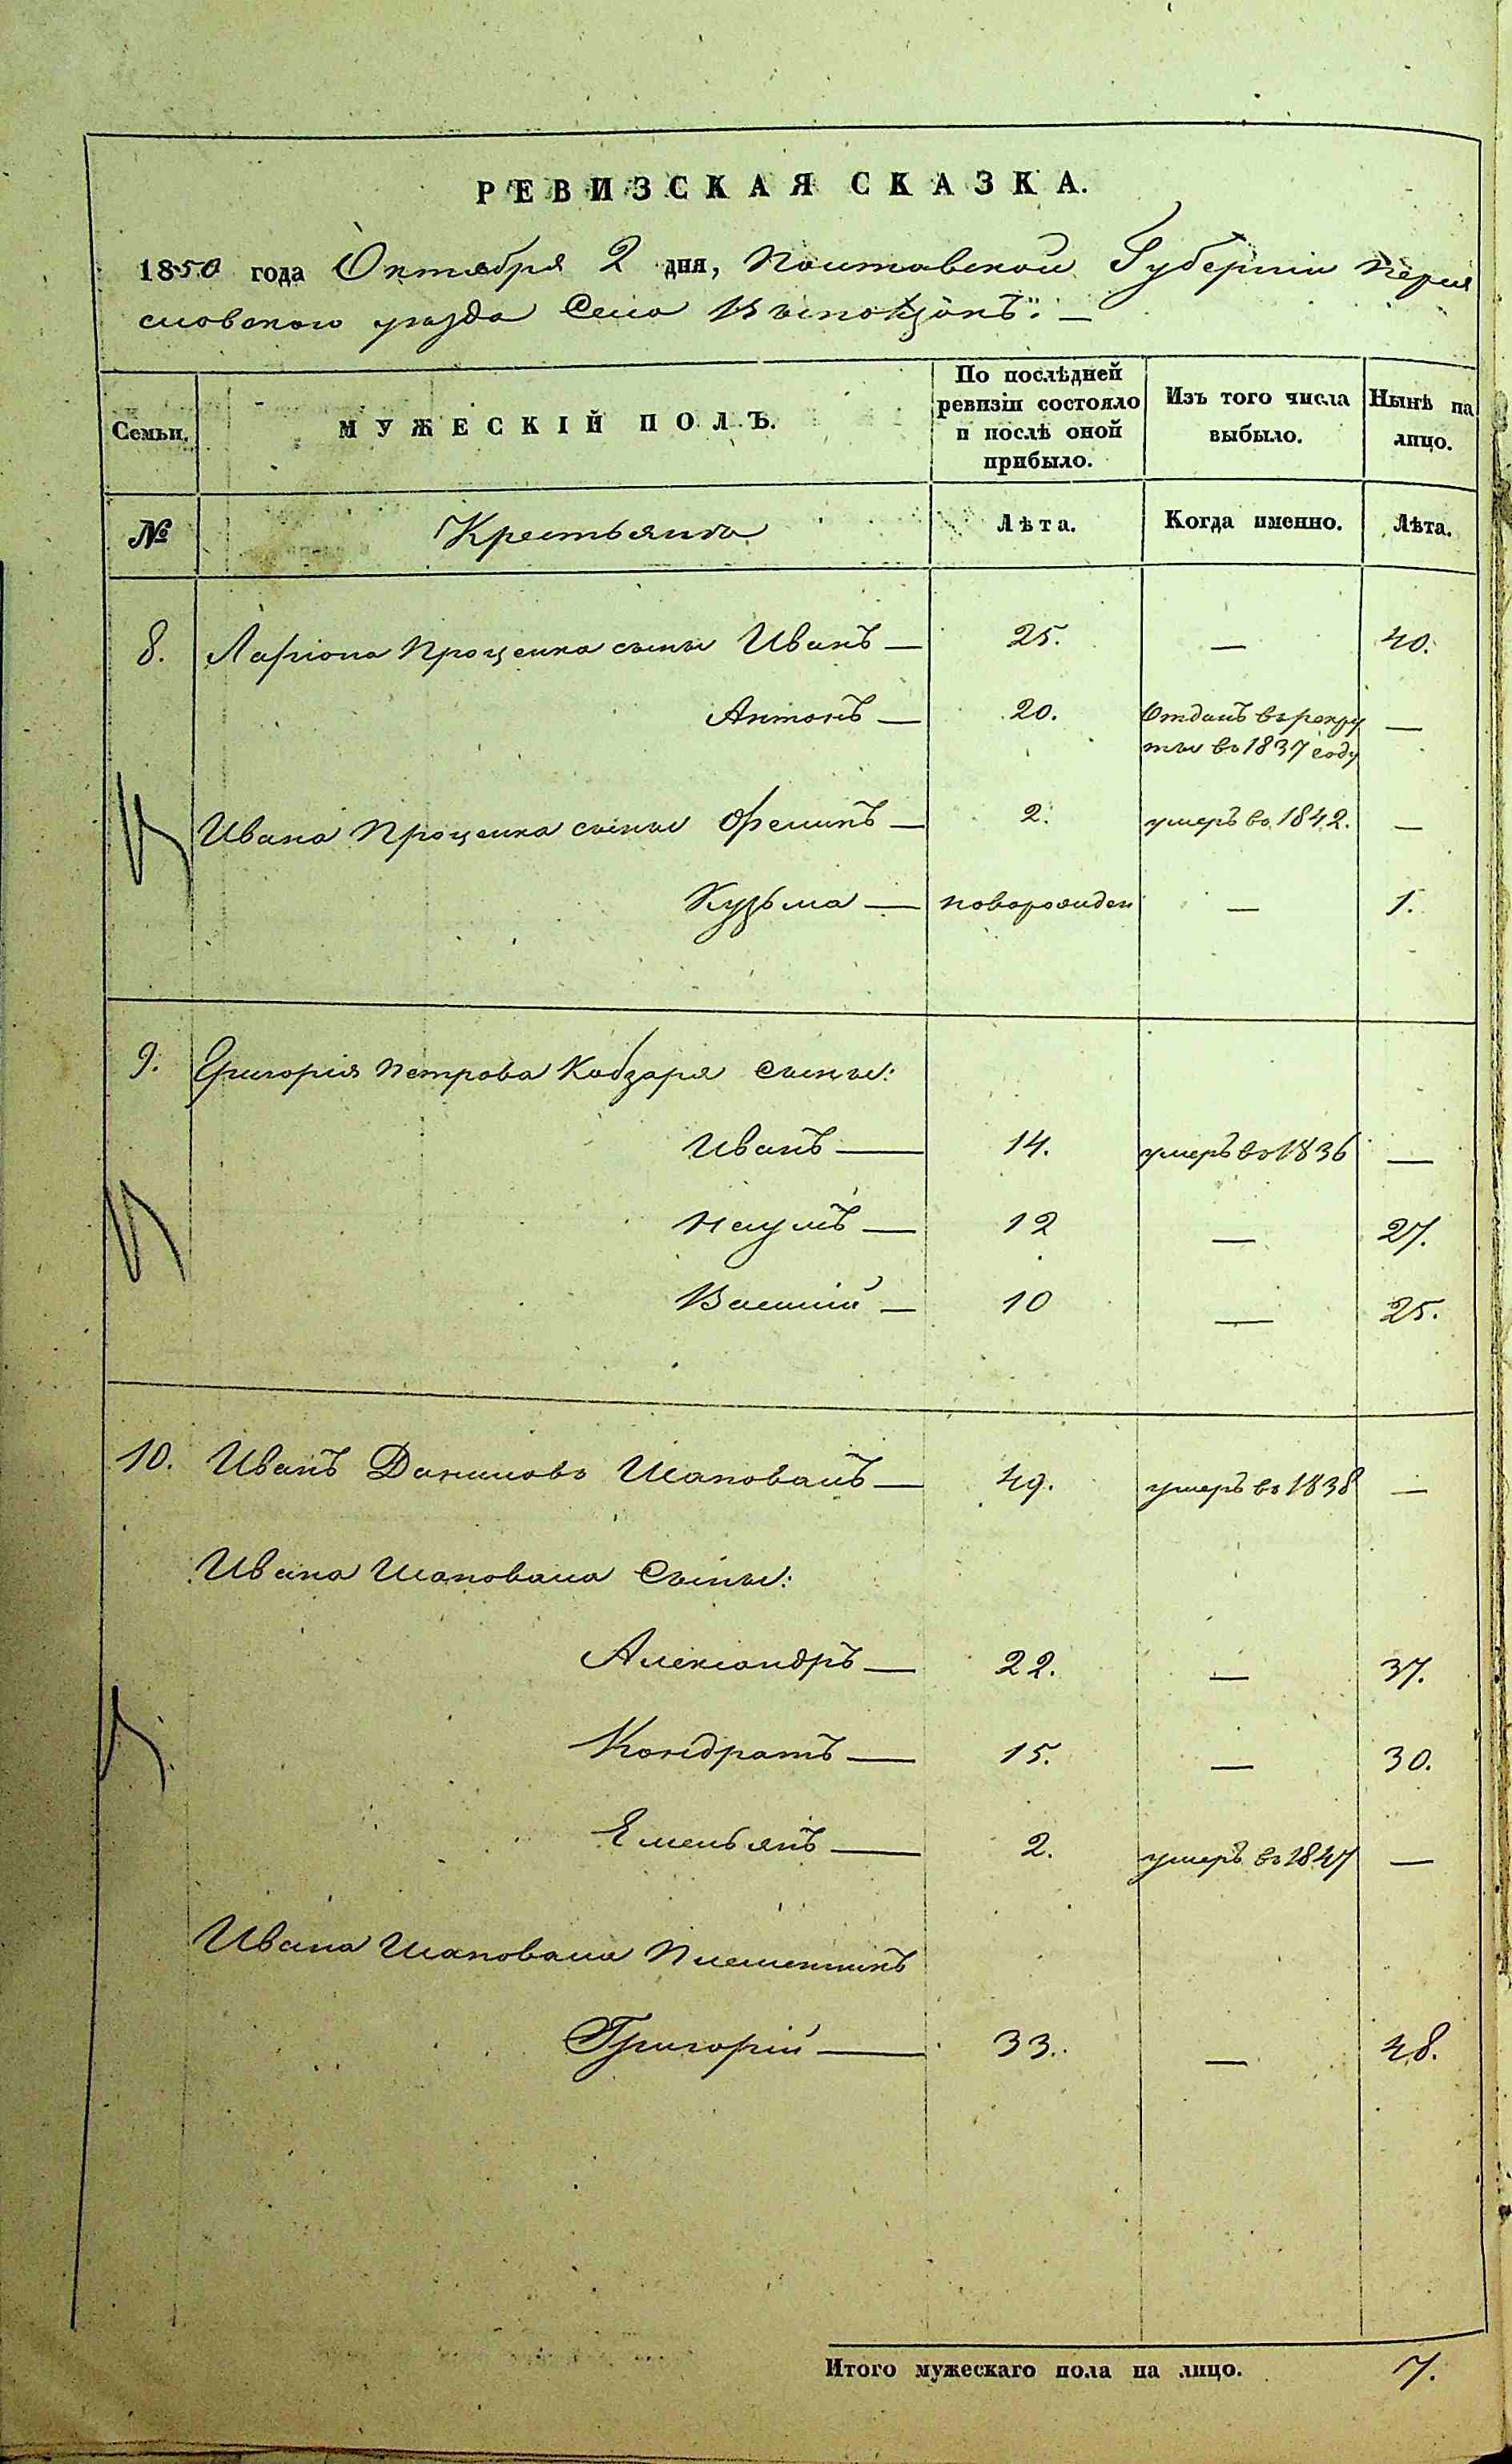 РЕВИЗСКАЯ СКАЗКА.
1850 года Октября 2 дня, Полтавской Губерніи Перея
словского уезда Села
Семьи. МУЖЕСКІЙ ПОЛЪ. По послѣдней ревизіи состояло и послѣ оной прибыло. Изъ того числа выбыло. Нынѣ на лицо.
№ Крестьяне Лѣта. Когда именно. Лѣта.
8. Ларіона Проценка сыны Иванъ — 25. — 40.
Антонъ — 20. Отданъ въ рекру
ты въ 1837 году —
Ивана Проценка сыны — 2. умеръ въ 1842. —
Кузьма — новорожден — 1.
9. Григорія Петрова Кобзаря Сыны:
Иванъ — 14. умеръ въ 1836 —
Наумъ — 12 — 27.
Василій — 10 — 25.
10. Иванъ Даниловъ Шаповалъ — 49. умеръ въ 1838 —
Ивана Шаповала Сыны:
Александръ — 22. — 37.
Кондратъ — 15. — 30.
Емельянъ — 2. умеръ въ 1847 —
Ивана Шаповала Племенникъ
Григорій — 33. — 48.
Итого мужескаго пола на лицо. 7.